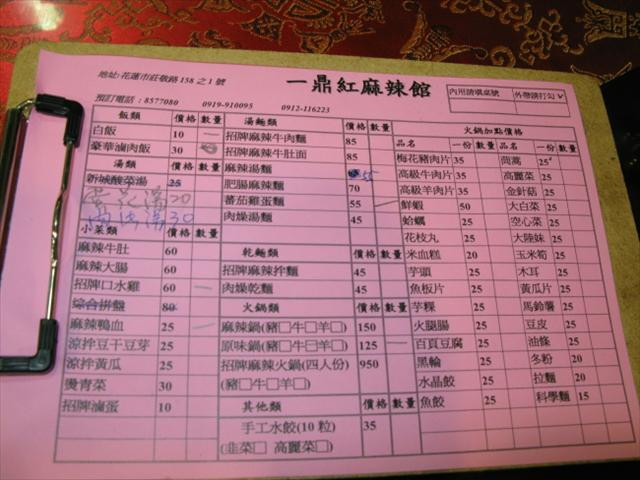 地址:花蓮市莊敬路158之1號
一鼎紅麻辣館
內用請填桌號 外帶請打勾∨
預訂電話:8577080 0919-910095 0912-116223
飯類 價格 數量
白飯 10
豪華滷肉飯 30
湯類 價格 數量
新城酸菜湯 25
蛋花湯 20
湯 30
小菜類 價格 數量
麻辣牛肚 60
麻辣大腸 60
招牌口水雞 60
綜合拼盤 80
麻辣鴨血 25
涼拌豆干豆芽 25
涼拌黃瓜 25
燙青菜 30
招牌滷蛋 10
湯麵類 價格 數量
招牌麻辣牛肉麵 85
招牌麻辣牛肚麵 85
麻辣湯麵 55
肥腸麻辣麵 70
蕃茄雞蛋麵 55
肉燥湯麵 45
乾麵類 價格 數量
招牌麻辣拌麵 45
肉燥乾麵 45
火鍋類 價格 數量
麻辣鍋(豬□牛□羊□) 150
原味鍋(豬□牛□羊□) 125
招牌麻辣火鍋(四人份) 950
(豬□牛□羊□)
其他類 價格 數量
手工水餃(10粒) 35
(韭菜□ 高麗菜□)
火鍋加點價格
品名 一份 數量 品名 一份 數量
梅花豬肉片 35 茼蒿 25
高級牛肉片 35 高麗菜 25
高級羊肉片 35 金針菇 25
鮮蝦 50 大白菜 25
蛤蠣 25 空心菜 25
花枝丸 25 大陸妹 25
米血糕 20 玉米筍 25
芋頭 25 木耳 25
魚板片 25 黃瓜片 25
芋粿 25 馬鈴薯 25
火腿腸 25 豆皮 25
百頁豆腐 25 油條 25
黑輪 25 冬粉 20
水晶餃 25 拉麵 20
魚餃 25 科學麵 15